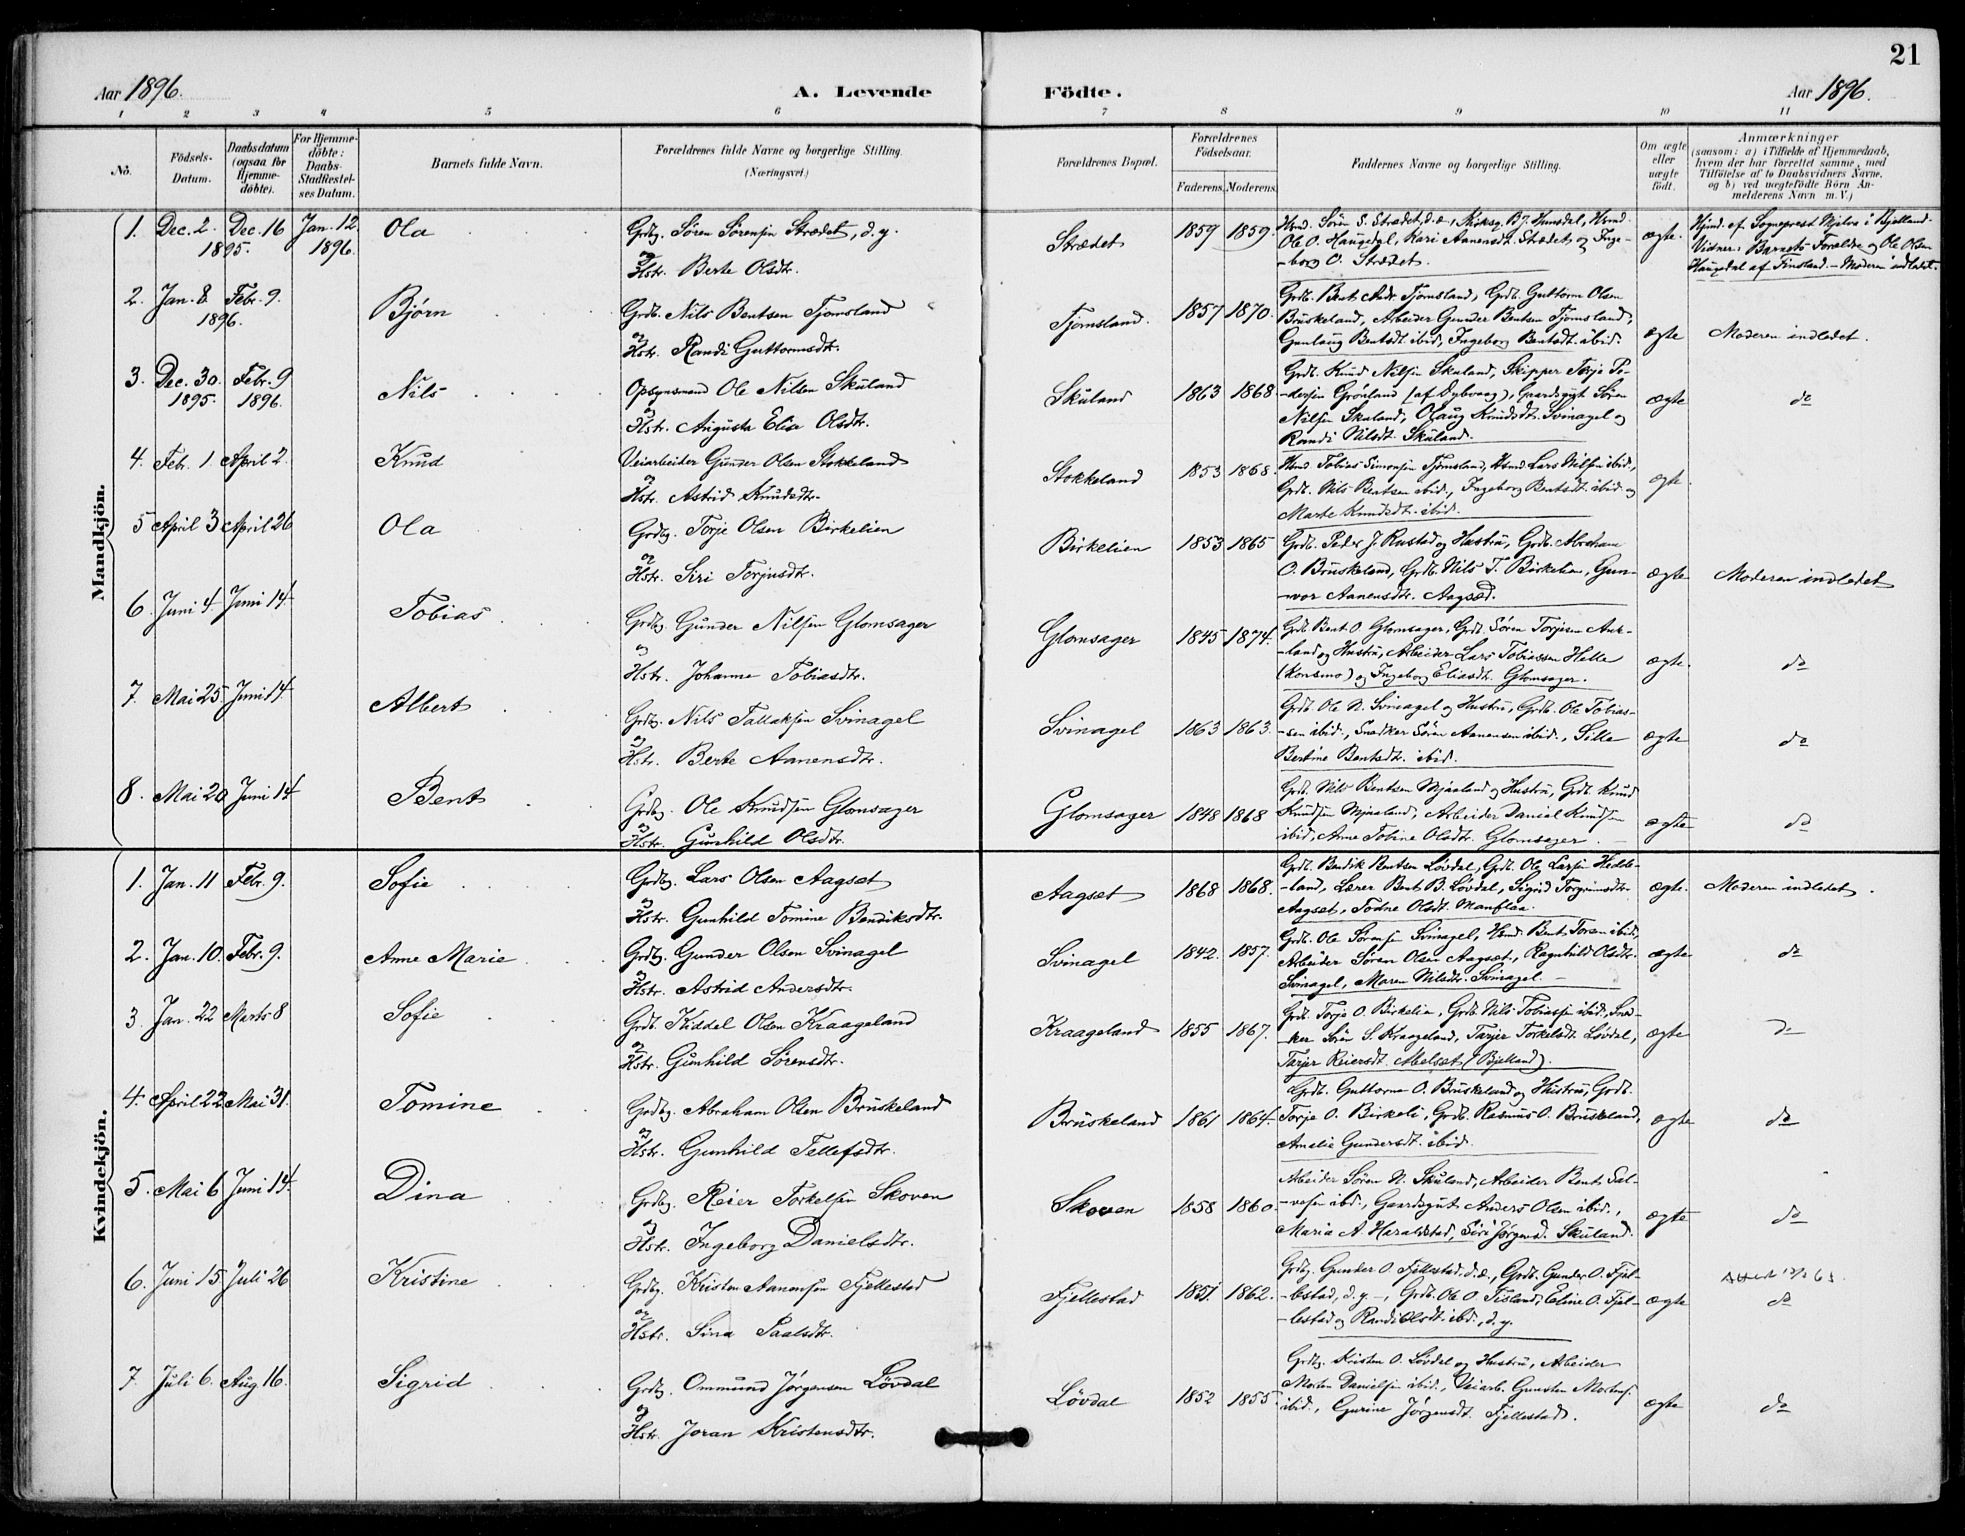 21
Aar 1896.
A. Levende
Födte.
Aar 1896.
1 2 3 4 5 6 7 8 9 10 11
No.
Födsels-Datum.
Daabsdatum (ogsaa for Hjemme-döbte).
For Hjemme-döbte: Daabs-Stadfæstel-ses Datum.
Barnets fulde Navn.
Forældrenes fulde Navne og borgerlige Stilling. (Næringsvei.)
Forældrenes Bopæl.
Forældrenes Födselsaar.
Faderens. Moderens.
Faddernes Navne og borgerlige Stilling.
Om ægte eller uægte födt.
Anmærkninger
(saasom: a) i Tilfælde af Hjemmedaab,
hvem der har forrettet samme, med
Tilföielse af to Daabsvidners Navne,
og b) ved uægtefödte Börn An-
melderens Navn m. V.)
Mandkjön.
1. Dec. 2. 1895. Dec. 16 Jan. 12 1896. Ola
Grdbg. Sören Sörensen Strædet, d. y.
og
Hstr. Berte Olsdtr.
Strædet 1859 1859.
Hsmd. Sören S. Strædet, d. æ., Kirksg. B. J. Hunsdal, Hsmd.
Ole O. Haugdal, Kari Aanensdt. Strædet og Inge-
-borg O. Strædet.
ægte.
Hjmd. af Sogneprest Mjelva i Bjelland.
Vidner: Barnets Forældre og Ole Olsen
Haugdal af Finsland. – Moderen indledet.
2. Jan. 8 1896. Febr. 9. Bjørn
Grdb. Nils Bentsen Tjomsland
og
Hstr. Randi Guttormsdtr.
Tjomsland. 1857 1870.
Grdb. Bent Andr. Tjomsland, Grdb. Guttorm Olsen
Brüskeland, Arbeider Gunder Bentsen Tjomsland,
Gunlaug Bentsdt. ibid., Ingeborg Bentsdt. ibid.
ægte Moderen indledet.
3. Dec. 30. 1895. Febr. 9 1896. Nils
Opsynsmand Ole Nilsen Skuland
og
Hstr. Augusta Elise Olsdtr.
Skuland 1863 1868.
Grdb. Knud Nilsen Skuland, Skipper Terje Pe-
-dersen Grönland (af Dybvaag), Gaardsgut Sören
Nilsen Skuland, Olaug Knudsdt. Svinagel og
Randi Nilsdt. Skuland.
ægte do
4. Feb. 1. April 2. Knud
Veiarbeider Gunder Olsen Stokkeland
og
Hstr. Astrid Knudsdtr.
Stokkeland 1853 1868.
Hsmd. Tobias Simonsen Tjomsland, Hsmd. Lars Nilsen ibid.,
Grdb. Nils Bentsen ibid., Ingeborg Bentsdt. ibid. og
Marte Knudsdt. ibid.
ægte.
5 April 3 April 26 Ola
Grdbg. Torje Olsen Birkelien
og
Hstr. Siri Torjusdtr.
Birkelien 1853 1865
Grdb. Peder J. Rustad og Hustru, Grdb. Abraham
O. Brüskeland, Grdb. Nils T. Birkelien, Gun-
-vor Aanensdtr. Aagsæt.
ægte Moderen indledet
6. Juni 4. Juni 14. Tobias
Grdbg. Gunder Nilsen Glomsager
og
Hstr. Johanne Tobiasdtr.
Glomsager 1845 1874.
Grdb. Bent O. Glomsager, Grdb. Sören Torjesen Auk-
-land og Hustru, Arbeider Lars Tobiassen Helle
(Konsmo) og Ingeborg Eliasdt. Glomsager.
ægte. do
7. Mai 25 Juni 14 Albert
Grdbg. Nils Tallaksen Svinagel
og
Hstr. Berte Aanensdtr.
Svinagel 1863 1863.
Grdb. Ole N. Svinagel og Hustru, Grdb. Ole Tobias-
-sen ibid., Snedker Sören Aanensen ibid., Sille
Bertine Bentsdt. ibid.
ægte do
8. Mai 20 Juni 14 Bent
Grdbg. Ole Knudsen Glomsager
og
Hstr. Gunhild Olsdtr.
Glomsager 1848 1868
Grdb. Nils Bentsen Mjaaland og Hustru, Grdb. Knud
Knudsen Mjaaland, Arbeider Daniel Knudsen
ibid., Anne Tobine Olsdtr. Glomsager.
ægte do
Kvindekjön.
1. Jan. 11 Febr. 9. Sofie
Grdbg. Lars Olsen Aagset
og
Hstr. Gunhild Tomine Bendiksdtr.
Aagset 1868 1868.
Grdb. Bendik Bentsen Lövdal, Grdb. Ole Larsen Hedde-
-land, Lærer Bent B. Lövdal, Sigrid Torgrimsdtr.
Aagset, Todne Olsdt. Manflaa.
ægte. Moderen indledet.
2. Jan. 10. Febr. 9. Anne Marie
Grdbg. Gunder Olsen Svinagel
og
Hstr. Astrid Andersdtr.
Svinagel 1842. 1857.
Grdb. Ole Sörensen Svinagel, Hsmd. Bent Toresen ibid.,
Arbeider Sören Olsen Aagset, Ragnhild Olsdtr.
Svinagel, Maren Nilsdtr. Svinagel
ægte do
3. Jan. 22 Marts 8 Sofie
Grdb. Kiddel Olsen Kraageland
og
Hstr. Gunhild Sörensdtr.
Kraageland 1855 1867.
Grdb. Torje O. Birkelien, Grdb. Nils Tobiassen ibid., Sned-
-ker Sören S. Kraageland, Tarjer Torkelsdt. Lövdal,
Tarjer Reiersdt. Melset (Bjelland).
ægte do
4. April 22 Mai 31. Tomine
Grdbg. Abraham Olsen Brüskeland
og
Hstr. Gunhild Tellefsdtr.
Brüskeland 1861 1864.
Grdb. Guttorm O. Brüskeland og Hustru, Grdb.
Torje O. Birkeli, Grdb. Rasmus O. Brüskeland,
Amalie Gundersdt. ibid.
ægte do
5. Mai 6 Juni 14. Dina
Grdbg. Reier Torkelsen Skoven
og
Hstr. Ingeborg Danielsdtr.
Skoven 1858 1860.
Arbeider Sören N. Skuland, Arbeider Bent Sal-
-vesen ibid., Gaardsgut Anders Olsen ibid.,
Maria A. Haraldstad, Siri Jörgensd. Skuland.
ægte do
6. Juni 15. Juli 26 Kristine
Grdbg. Kristen Aanensen Fjellestad
og
Hstr. Sina Paalsdtr.
Fjellestad 1851. 1862.
Grdbg. Gunder O. Fjellestad, d. æ., Grdb. Gunder O. Fjel-
-lestad, d. y., Grdb. Ole O. Tisland, Eline O. Fjel-
-lestad og Randi Olsdt. ibd., d. y.
ægte do
7. Juli 6. Aug 16. Sigrid
Grdbg. Ommund Jörgensen Lövdal
og
Hstr. Joran Kristensdtr.
Lövdal 1852 1855.
Grdbg. Kristen O. Lövdal og Hustru, Arbeider
Morten Danielsen ibid., Veiarb. Gunsten Mortens.
ibid., Gurine Jörgensdt. Fjellestad.
ægte do